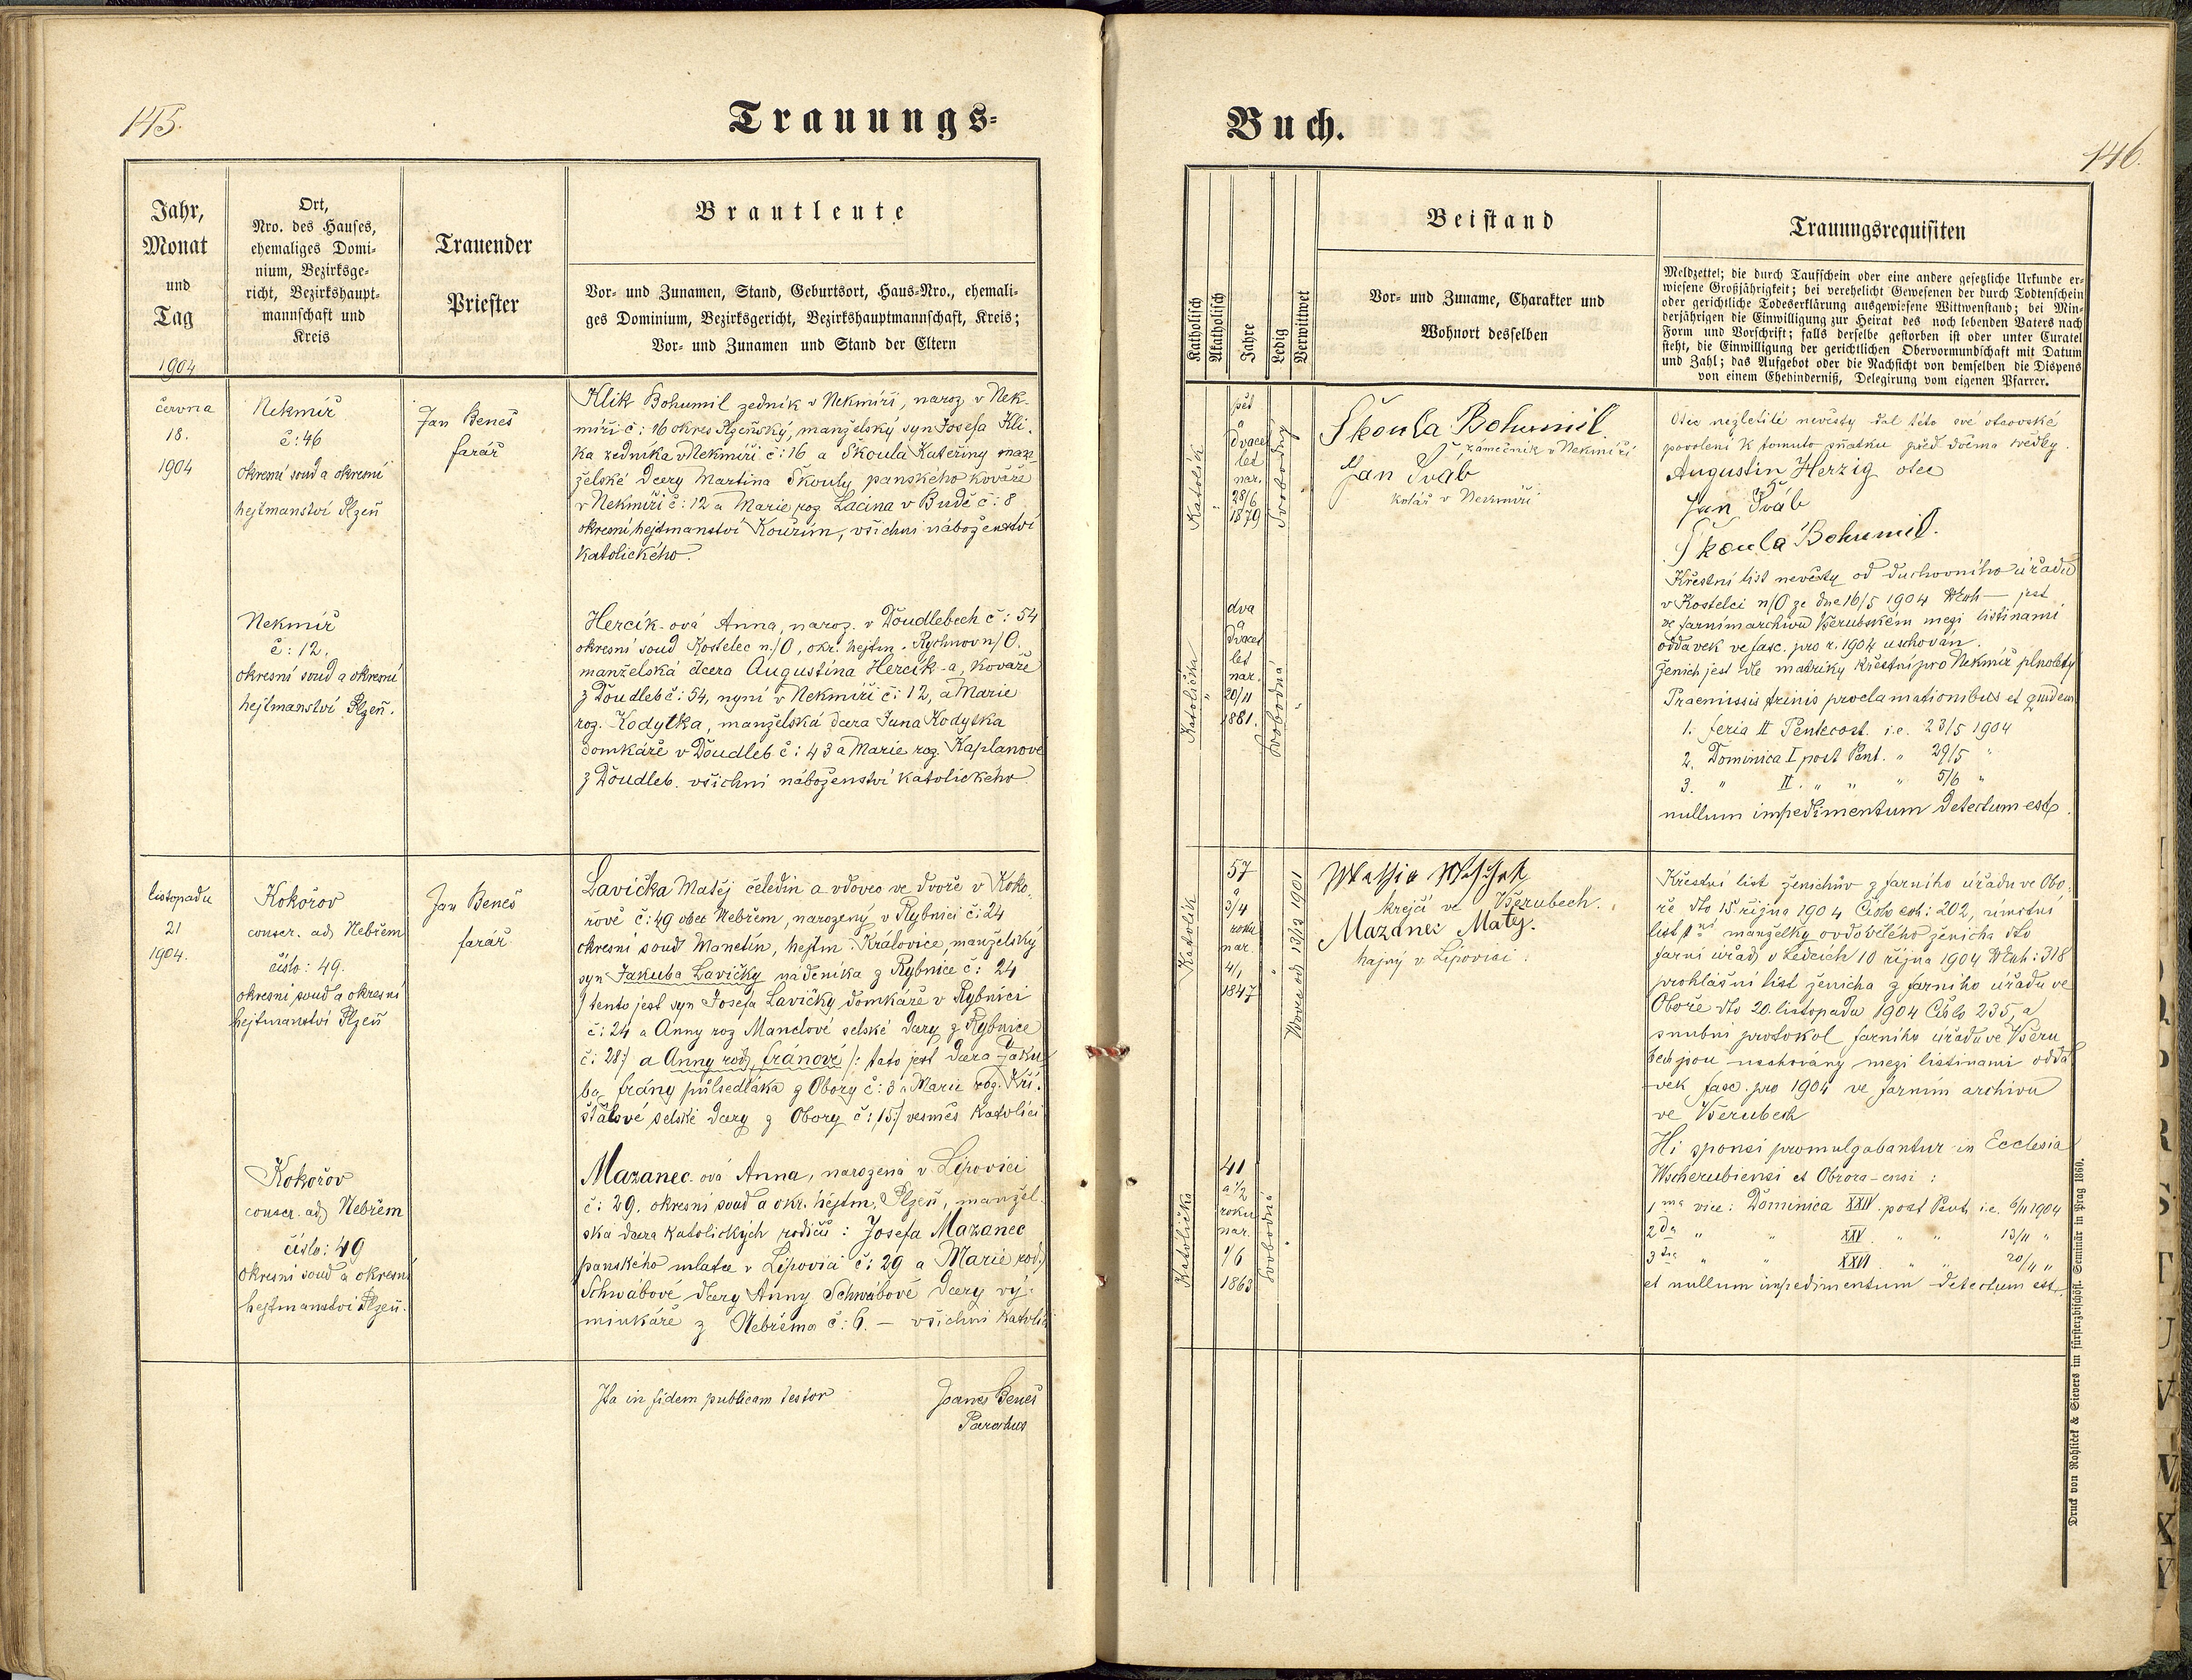 145.
Trauungs=
Jahr,
Monat
und
Tag
1904
Ort,
Nro. des Hauses,
ehemaliges Domi-
nium, Bezirksge-
richt, Bezirkshaupt-
mannschaft und
Kreis
Trauender
Priester
Brautleute
Vor- und Zunamen, Stand, Geburtsort, Haus-Nro., ehemali-
ges Dominium, Bezirksgericht, Bezirkshauptmannschaft, Kreis;
Vor- und Zunamen und Stand der Eltern
června
18.
1904
Nekmíř
č: 46
okresní soud a okresní
hejtmanství Plzeň
Jan Beneš
farář
Klik Bohumil zedník v Nekmíři, naroz v Nek-
míři č: 16 okres Plzeňský, manželský syn Josefa Kli-
ka zedníka v Nekmíři č: 16 a Škoula Kateřiny man-
želské dcery Martina Škouly panského kováře
v Nekmíři č: 12 a Marie roz Lacina v Budě č: 8
okresní hejtmanství Kouřim, všichni náboženství
katolického.
Nekmíř
č: 12.
okresní soud a okresní
hejtmanství Plzeň.
Hercík-ová Anna, naroz. v Doudlebech č: 54
okresní soud Kostelec n./O, okr. hejtm. Rychnov n/O.
manželská dcera Augustina Hercík-a, kováře
z Doudleb č: 54, nyní v Nekmíři č: 12, a Marie
roz. Kodytka, manželská dcera Jana Kodytka
domkáře v Doudleb č: 43 a Marie roz. Kaplanové
z Doudleb. všichni náboženství katolického
listopadu
21
1904.
Kokořov
conscr. ad Nebřem
číslo: 49.
okresní soud a okresní
hejtmanství Plzeň
Jan Beneš
farář
Lavička Matěj čeledín a vdovec ve dvoře v Koko-
řově č: 49 obec Nebřem, narozený v Rybnici č: 24
okresní soud Manetín, hejtm. Královice, manželský
syn Jakuba Lavičky nádeníka z Rybnice č: 24
/ tento jest syn Josefa Lavičky domkáře v Rybnici
č: 24 a Anny roz Manclové selské dcery z Rybnice
č: 28:/ a Anny rod. fránové /: tato jest dcera Jaku-
ba frány půlsedláka z Obory č: 3 a Marie roz. Kři-
šťálové selské dcery z Obory č: 15:/ vesměs katolíci
Kokořov
conscr. ad Nebřem
číslo: 49
okresní soud a okresní
hejtmanství Plzeň.
Mazanec-ová Anna, narozená v Lipovici
č: 29. okresní soud a okr. hejtm. Plzeň, manžel-
ská dcera katolických rodičů: Josefa Mazanec
panského mlatce v Lipovici č: 29 a Marie rod.
Schwábové dcery Anny Schwábové dcery vý-
minkáře z Nebřema č: 6. — všichni katolíci
Ita in fidem publicam testor
Joanes Beneš
Parochus
Buch.
146.
Katholisch
Akatholisch
Jahre
Ledig
Verwittwet
Beistand
Vor- und Zuname, Charakter und
Wohnort desselben
Trauungsrequisiten
Meldzettel; die durch Taufschein oder eine andere gesetzliche Urkunde er-
wiesene Großjährigkeit; bei verehelicht Gewesenen der durch Todtenschein
oder gerichtliche Todeserklärung ausgewiesene Wittwenstand; bei Min-
derjährigen die Einwilligung zur Heirat des noch lebenden Vaters nach
Form und Vorschrift; falls derselbe gestorben ist oder unter Curatel
steht, die Einwilligung der gerichtlichen Obervormundschaft mit Datum
und Zahl; das Aufgebot oder die Nachsicht von demselben die Dispens
von einem Ehehinderniß, Delegirung vom eigenen Pfarrer.
Katolík
pět
a
dvacet
let
nar.
28/6
1879
Svobodný
Škoula Bohumil.
zámečník v Nekmíři
Jan Šváb
kolář v Nekmíři
Otec nezletilé nevěsty dal této své otcovské
povolení k tomuto sňatku před dvěma svědky.
Augustin Herzig otec
Jan Šváb
Škoula Bohumil.
Křestní list nevěsty od duchovního úřadu
v Kostelci n/O ze dne 16/5 1904 — jest
ve farním archivu Všerubském mezi listinami
oddavek ve fasc. pro r. 1904 uschován.
Ženich jest dle matriky křestní pro Nekmíř plnoletý
Praemissis trinis proclamationibus et quidem
1. feria II Pentecost. i.e. 23/5 1904
2. Dominica I post Pent. " 29/5 "
3. " II. " " " 5/6 "
nullum impedimentum detectum est.
Katolička
dva
a
dvacet
let
nar.
20/11
1881.
Svobodná
Katolík
57
a
3/4
roku
nar.
4/1
1847
Vdovec od 13/12 1901
krejčí ve Všerubech.
Mazanec Matěj.
hajný v Lipovici.
Křestní list ženichův z farního úřadu ve Obo-
ře dto 15 října 1904 Číslo exh: 202, úmrtní
list 1ní manželky ovdovělého ženicha dto
farní úřad v Ledcích 10 října 1904 exh: 318
prohlášní list ženicha z farního úřadu ve
Oboře dto 20. listopadu 1904 Číslo 235, a
snubní protokol farního úřadu ve Všeru-
bech jsou uschovány mezi listinami odda-
vek fasc. pro 1904 ve farním archivu
ve Všerubech
Hi sponsi promulgabantur in Ecclesia
Wscherubiensi et Obrora-ensi:
1ma vice: Dominica XXIV. post Pent. i.e. 6/11 1904
2da " " XXV. " " 13/11 "
3tia " " XXVI. " " 20/11 "
et nullum impedimentum detectum est.
Katolička
41
a 1/2
roku
nar.
1/6
1863
Svobodná
Druck von Rohliček & Sievers im fürsterzbischöfl. Seminär in Prag 1860.